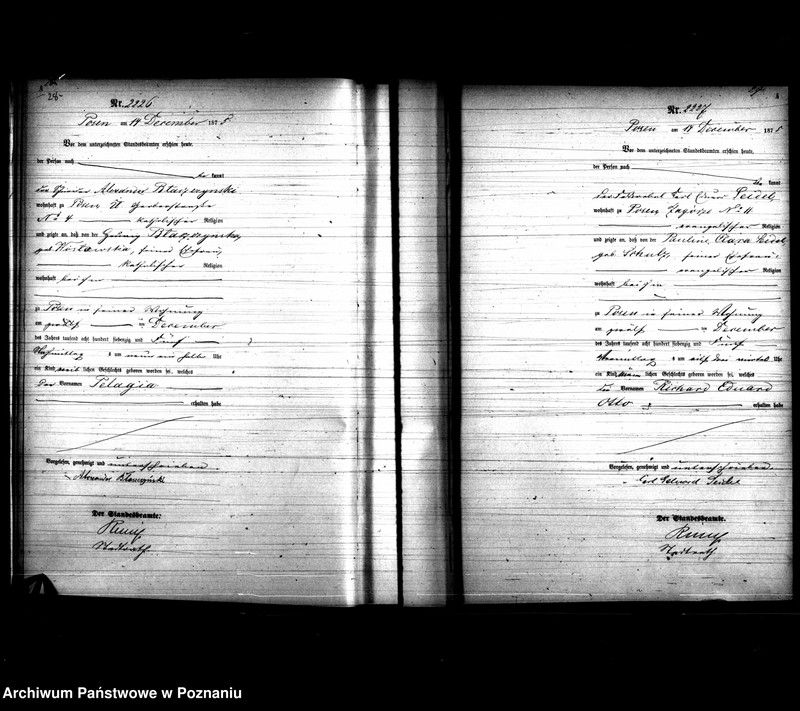 28
Nr. 2226
Posen am 14 December 1875
Vor dem unterzeichneten Standesbeamten erschien heute,
der Person nach
kannt
Alexander Blaszczynski
wohnhaft zu Posen
No 4 katholischer Religion
und zeigte an, daß von der Hedwig Blaszczynska,
geb. seiner Ehefrau,
katholischer Religion
wohnhaft bei ihm
zu Posen in seiner Wohnung
am zwölften December
des Jahres tausend acht hundert siebenzig und fünf
Nachmittag s um neun ein halb Uhr
ein Kind weiblichen Geschlechts geboren worden sei, welches
den Vornamen Pelagia
erhalten habe
Vorgelesen, genehmigt und unterschrieben
Alexander Blaszczynski
Der Standesbeamte:
Stadtrath
Nr. 2227
Posen am 14 December 1875
Vor dem unterzeichneten Standesbeamten erschien heute,
der Person nach
kannt
Carl Eduard Seidel
wohnhaft zu Posen Zagorze No 11
evangelischer Religion
und zeigte an, daß von der Pauline, Clara Seidel
geb. Schulz, seiner Ehefrau
evangelischer Religion
wohnhaft bei ihm
zu Posen in seiner Wohnung
am December
des Jahres tausend acht hundert siebenzig und fünf
Vormittag s um Uhr
ein Kind männlichen Geschlechts geboren worden sei, welches
Vornamen Richard Eduard
Otto erhalten habe
Vorgelesen, genehmigt und unterschrieben
Carl Eduard Seidel
Der Standesbeamte.
Stadtrath
Archiwum Państwowe w Poznaniu